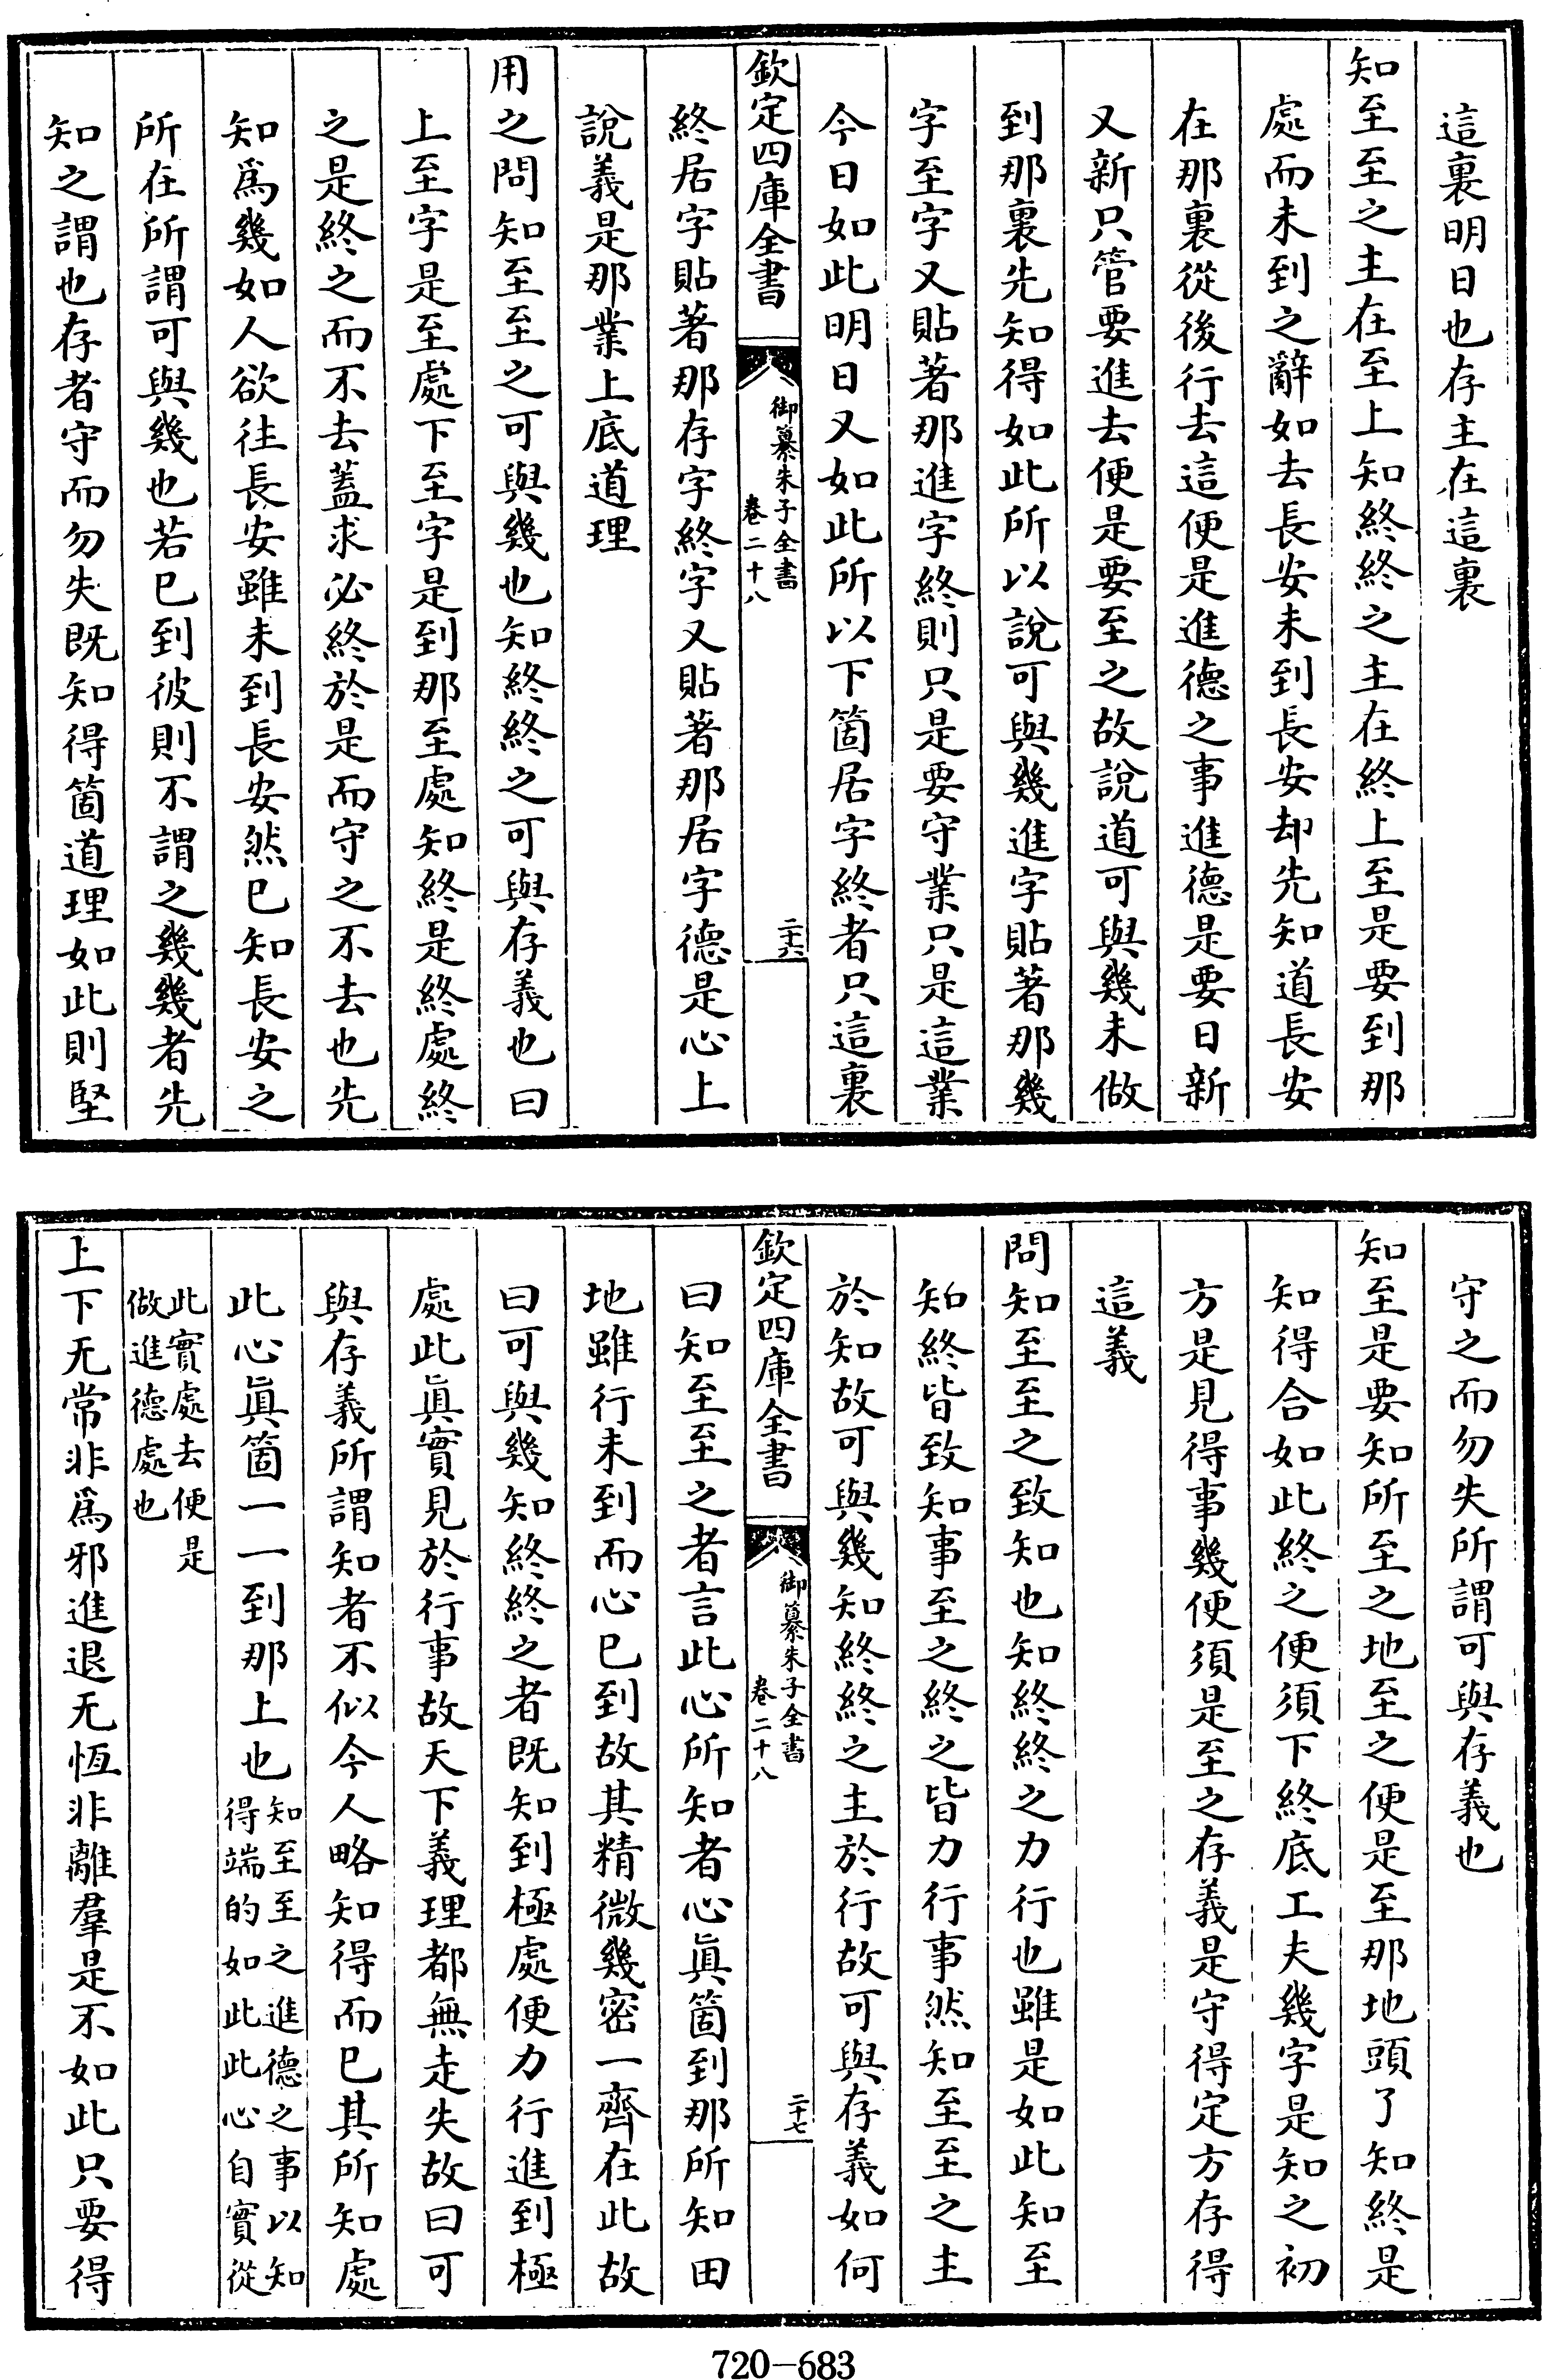 這裏明日也存主在這裏
知至至之主在至上知終終之主在終上至是要到那
處而未到之辭如去長安未到長安却先知道長安
在那裏從後行去這便是進德之事進德是要日新
又新只管要進去便是要至之故說道可與幾未做
到那裏先知得如此所以說可與幾進字貼著那幾
字至字又貼著那進字終則只是要守業只是這業
今日如此明日又如此所以下箇居字終者只這裏
欽定四庫全書
御纂朱子全書
卷二十八
二十六
終居字貼著那存字終字又貼著那居字德是心上
說義是那業上底道理
用之問知至至之可與幾也知終終之可與存義也曰
上至字是至處下至字是到那至處知終是終處終
之是終之而不去蓋求必終於是而守之不去也先
知爲幾如人欲往長安雖未到長安然已知長安之
所在所謂可與幾也若已到彼則不謂之幾幾者先
知之謂也存者守而勿失既知得箇道理如此則堅
守之而勿失所謂可與存義也
知至是要知所至之地至之便是至那地頭了知終是
知得合如此終之便須下終底工夫幾字是知之初
方是見得事幾便須是至之存義是守得定方存得
這義
問知至至之致知也知終終之力行也雖是如此知至
知終皆致知事至之終之皆力行事然知至至之主
於知故可與幾知終終之主於行故可與存義如何
欽定四庫全書
御纂朱子全書
卷二十八
二十七
曰知至至之者言此心所知者心眞箇到那所知田
地雖行未到而心已到故其精微幾密一齊在此故
曰可與幾知終終之者既知到極處便力行進到極
處此眞實見於行事故天下義理都無走失故曰可
與存義所謂知者不似今人略知得而已其所知處
此心眞箇一一到那上也知至至之進德之事以知
得端的如此此心自實從
此實處去便是
做進德處也
上下无常非爲邪進退无恆非離羣是不如此只要得
720-683